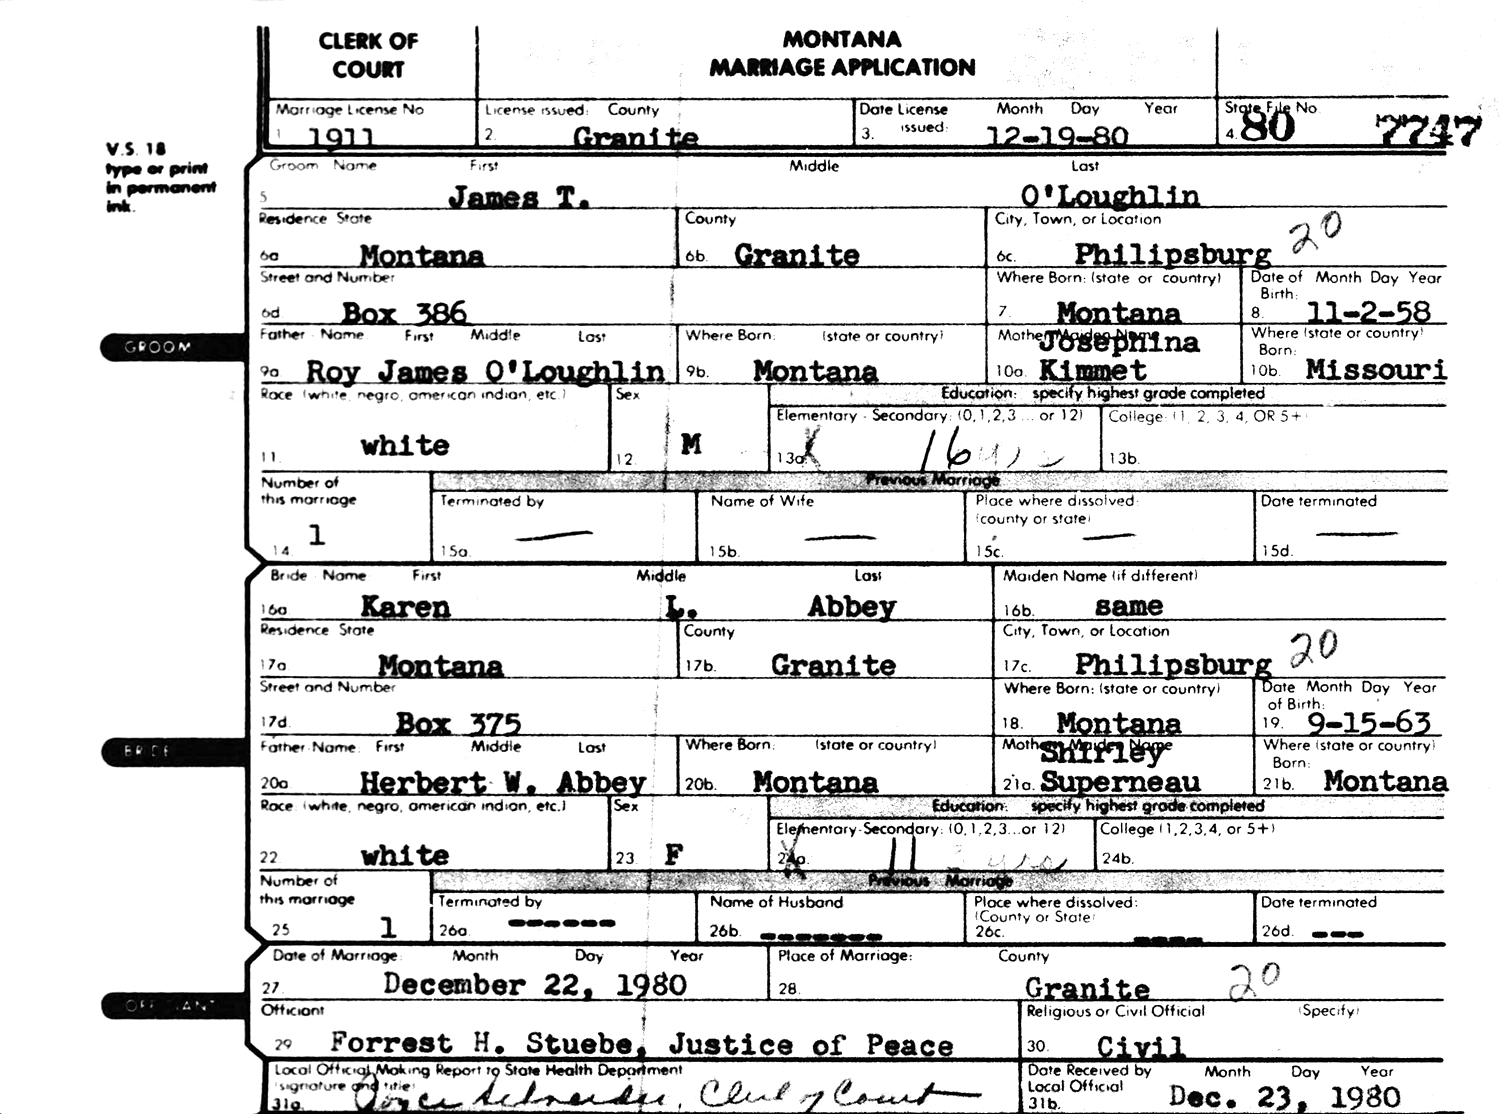 CLERK OF COURT
MONTANA
MARRIAGE APPLICATION
Marriage License No
1 1911
License issued: County
2. Granite
Date License issued: Month Day Year
3. 12-19-80
State File No.
4. 80 7747
V.S. 18
type or print
in permanent
ink.
Groom Name First Middle Last
5 James T. O'Loughlin
Residence State County City, Town, or Location
6a Montana 6b. Granite 6c. Philipsburg 20
Street and Number Where Born: (state or country) Date of Birth: Month Day Year
6d Box 386 7. Montana 8. 11-2-58
GROOM
Father Name First Middle Last Where Born: (state or country) Mother Maiden Name Where (state or country) Born:
9a Roy James O'Loughlin 9b. Montana 10a. Josephina Kimmet 10b. Missouri
Race (white, negro, american indian, etc.) Sex Education: specify highest grade completed
Elementary - Secondary: (0,1,2,3... or 12) College: (1, 2, 3, 4, OR 5+)
11. white 12. M 13a. 16 13b.
Number of this marriage Previous Marriage
Terminated by Name of Wife Place where dissolved: (county or state) Date terminated
14. 1 15a. — 15b. — 15c. — 15d. —
Bride Name First Middle Last Maiden Name (if different)
16a Karen L. Abbey 16b. same
Residence State County City, Town, or Location
17a Montana 17b. Granite 17c. Philipsburg 20
Street and Number Where Born: (state or country) Date of Birth: Month Day Year
17d. Box 375 18. Montana 19. 9-15-63
BRIDE
Father Name: First Middle Last Where Born: (state or country) Mother Maiden Name Where (state or country) Born:
20a Herbert W. Abbey 20b. Montana 21a. Shirley Superneau 21b. Montana
Race (white, negro, american indian, etc.) Sex Education: specify highest grade completed
Elementary-Secondary: (0,1,2,3...or 12) College (1,2,3,4, or 5+)
22. white 23. F 24a. 11 yrs 24b.
Number of this marriage Previous Marriage
Terminated by Name of Husband Place where dissolved: (County or State) Date terminated
25 1 26a. ------ 26b. ------- 26c. ---- 26d. ---
Date of Marriage: Month Day Year Place of Marriage: County
27. December 22, 1980 28. Granite 20
OFFICIANT
Officiant Religious or Civil Official (Specify)
29 Forrest H. Stuebe, Justice of Peace 30. Civil
Local Official Making Report to State Health Department Date Received by Local Official Month Day Year
(signature and title)
31a. Joyce Schneider, Clerk of Court 31b. Dec. 23, 1980